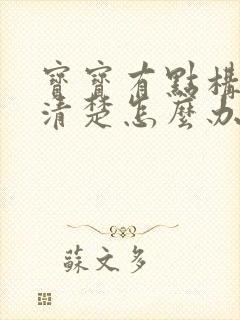 寶寶有點構
清楚怎麼办
蘇文多